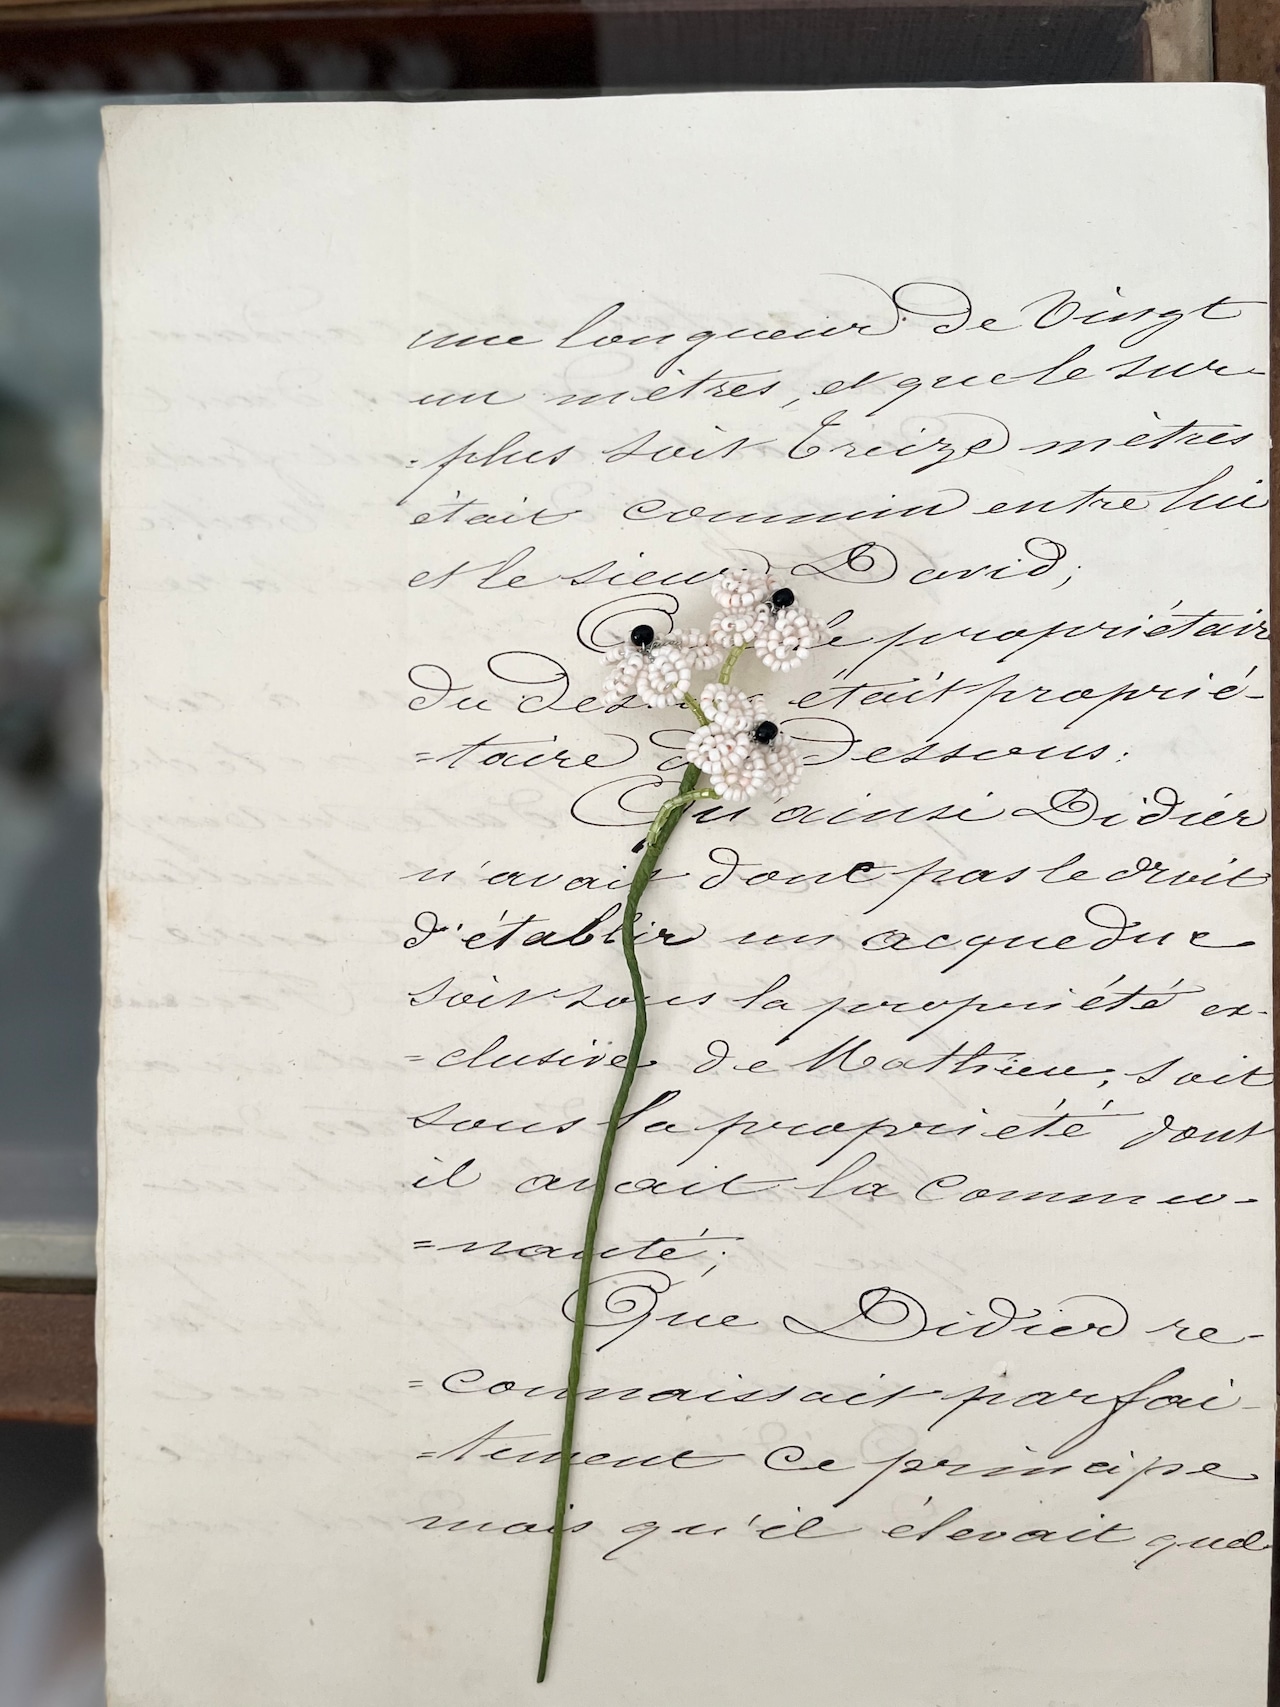 une longueur de Vingt
un mètres, et que le sur-
=plus soit Treize mètres
était commun entre lui
et le sieur David;
le propriétaire
du était proprié-
=taire dessous:
Qu'ainsi Didier
n'avait donc pas le droit
d'établir un acqueduc
soit sous la propriété ex-
=clusive de Mathieu, soit
sous la propriété dont
il avait la commu-
=nauté;
Que Didier re-
=connaissait parfai-
=tement ce principe
mais qu'il élevait quel